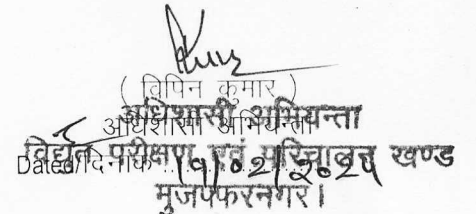 ( विपिन कुमार )
अधिशासी अभियन्ता
अधिशासी अभियन्ता
विद्युत परीक्षण एवं परिचालन खण्ड
Dated/दिनांक
मुजफ्फरनगर।